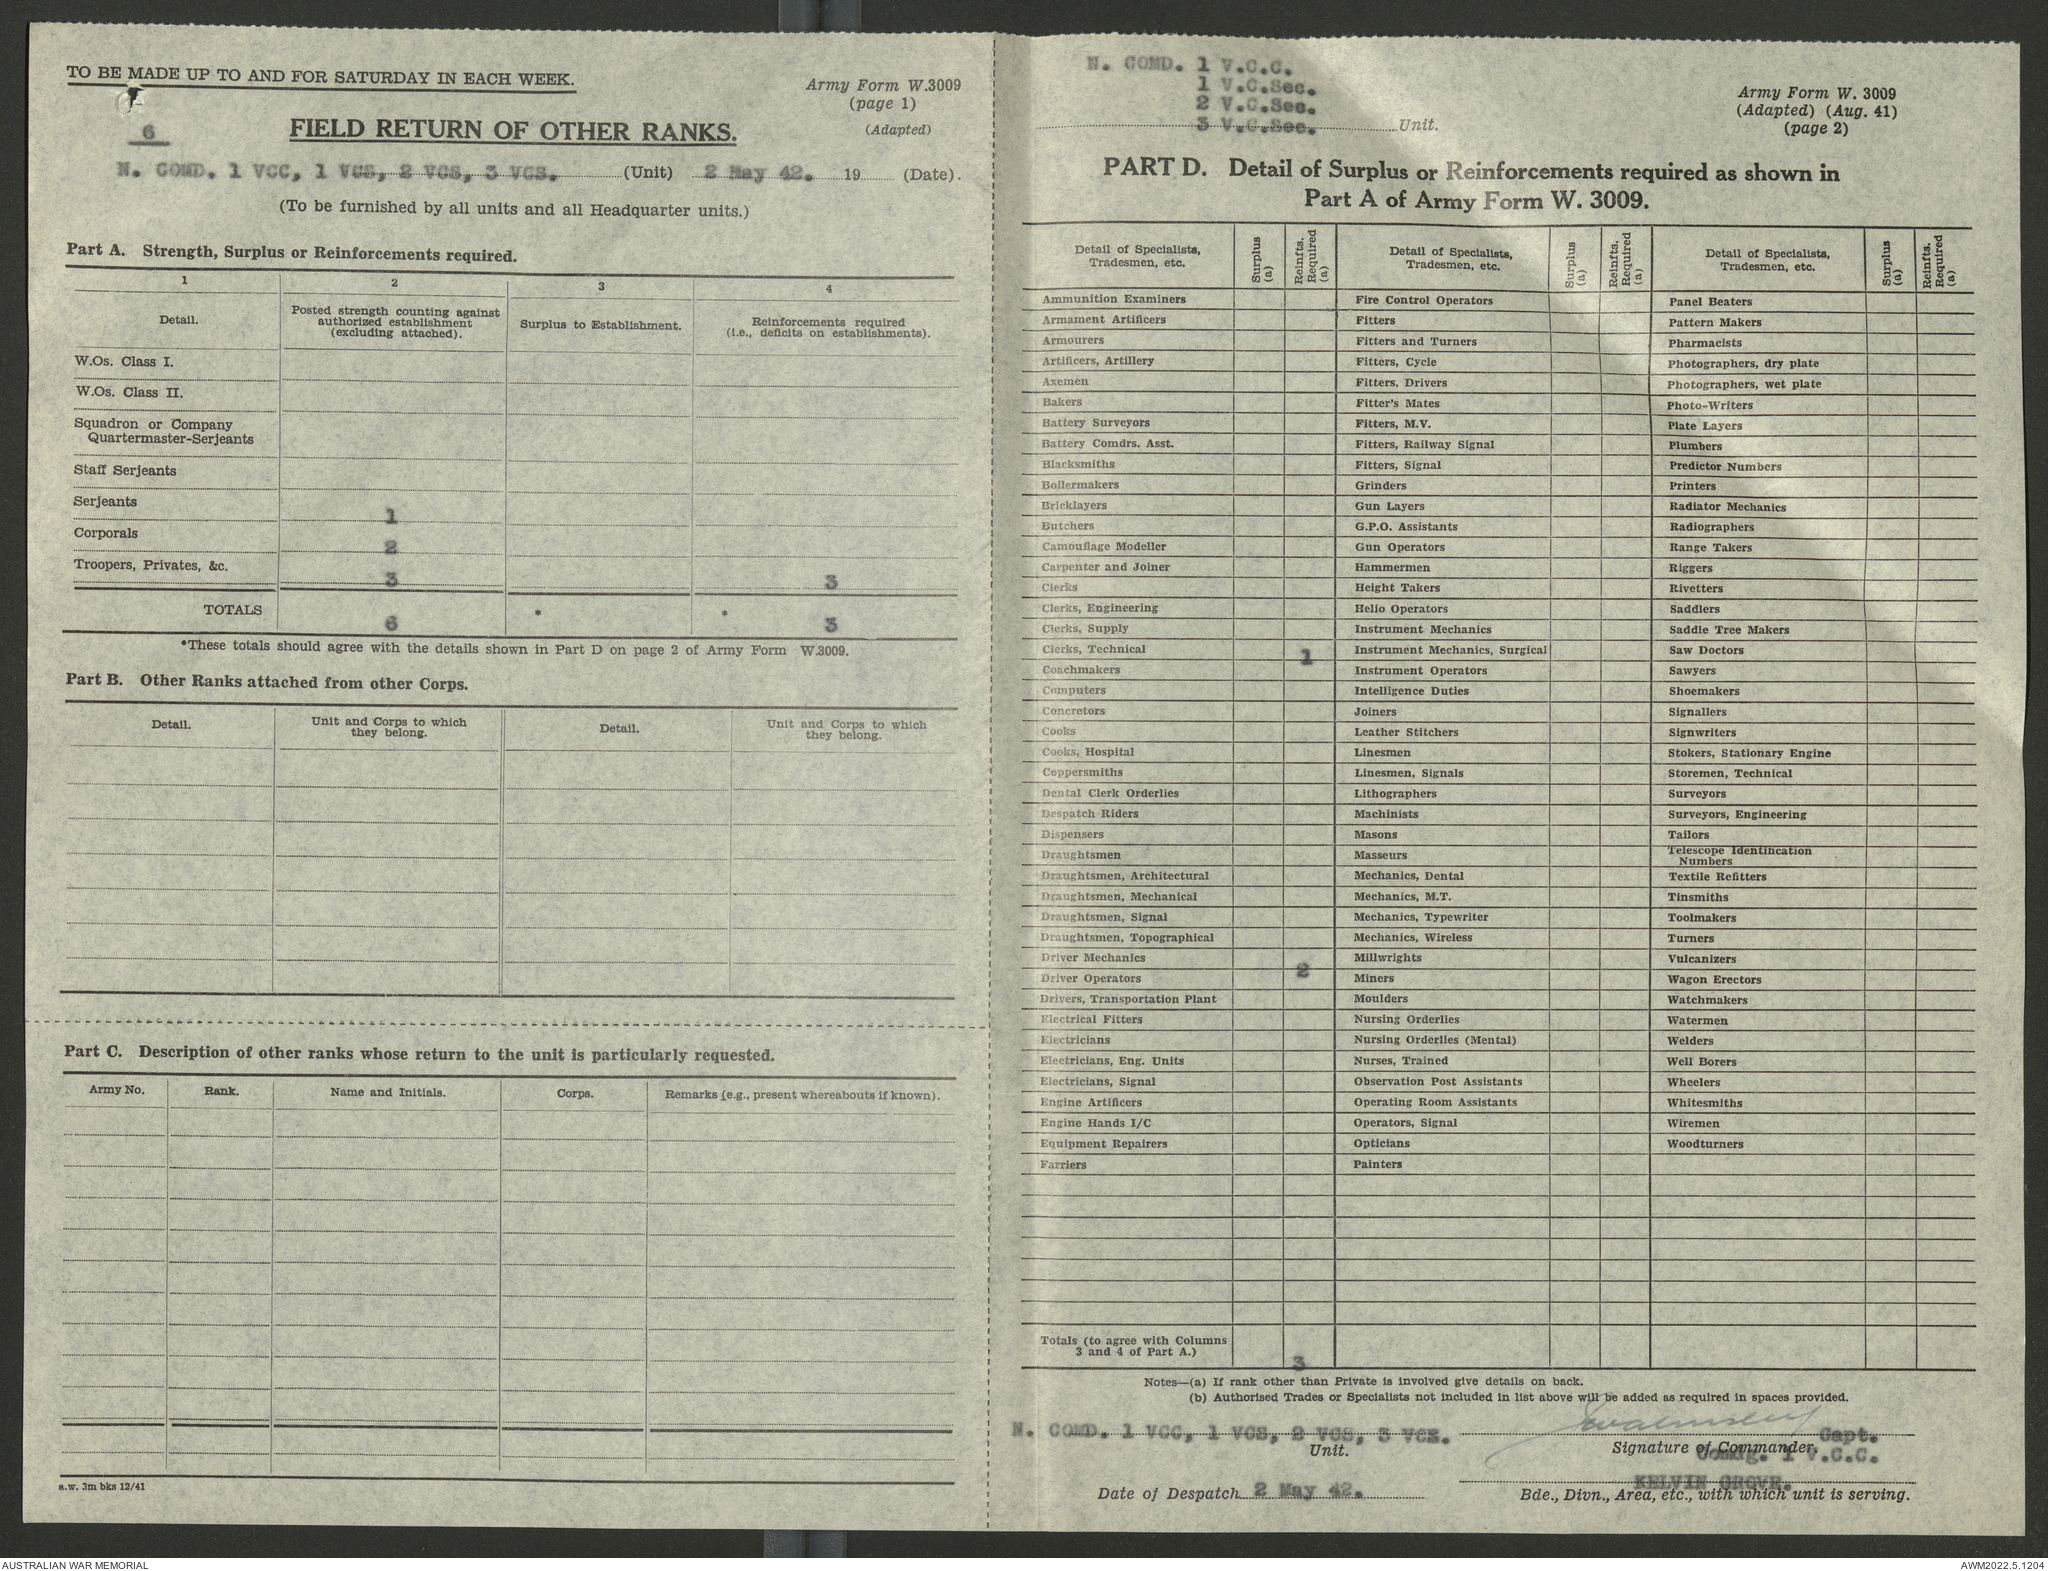 TO BE MADE UP TO AND FOR SATURDAY IN EACH WEEK.
Army Form W.3009
(page 1)
(Adapted)
6
FIELD RETURN OF OTHER RANKS.
N. COMD. 1 VCC, 1 VCS, 2 VCS, 3 VCS. (Unit) 2 May 42. 19 (Date).
(To be furnished by all units and all Headquarter units.)
Part A. Strength, Surplus or Reinforcements required.
1 2 3 4
Detail.
Posted strength counting against
authorized establishment
(excluding attached).
Surplus to Establishment.
Reinforcements required
(i.e., deficits on establishments).
W.Os. Class I.
W.Os. Class II.
Squadron or Company
Quartermaster-Serjeants
Staff Serjeants
Serjeants 1
Corporals 2
Troopers, Privates, &c. 3 3
TOTALS 6 * * 3
*These totals should agree with the details shown in Part D on page 2 of Army Form W.3009.
Part B. Other Ranks attached from other Corps.
Detail.
Unit and Corps to which
they belong.
Detail.
Unit and Corps to which
they belong.
Part C. Description of other ranks whose return to the unit is particularly requested.
Army No. Rank. Name and Initials. Corps. Remarks (e.g., present whereabouts if known).
a.w. 3m bks 12/41
N. COMD. 1 V.C.C.
1 V.C.Sec.
2 V.C.Sec.
3 V.C.Sec. Unit.
Army Form W. 3009
(Adapted) (Aug. 41)
(page 2)
PART D. Detail of Surplus or Reinforcements required as shown in
Part A of Army Form W. 3009.
Detail of Specialists,
Tradesmen, etc.
Surplus
(a)
Reinfts.
Required
(a)
Detail of Specialists,
Tradesmen, etc.
Surplus
(a)
Reinfts.
Required
(a)
Detail of Specialists,
Tradesmen, etc.
Surplus
(a)
Reinfts.
Required
(a)
Ammunition Examiners Fire Control Operators Panel Beaters
Armament Artificers Fitters Pattern Makers
Armourers Fitters and Turners Pharmacists
Artificers, Artillery Fitters, Cycle Photographers, dry plate
Axemen Fitters, Drivers Photographers, wet plate
Bakers Fitter's Mates Photo-Writers
Battery Surveyors Fitters, M.V. Plate Layers
Battery Comdrs. Asst. Fitters, Railway Signal Plumbers
Blacksmiths Fitters, Signal Predictor Numbers
Boilermakers Grinders Printers
Bricklayers Gun Layers Radiator Mechanics
Butchers G.P.O. Assistants Radiographers
Camouflage Modeller Gun Operators Range Takers
Carpenter and Joiner Hammermen Riggers
Clerks Height Takers Rivetters
Clerks, Engineering Helio Operators Saddlers
Clerks, Supply Instrument Mechanics Saddle Tree Makers
Clerks, Technical 1 Instrument Mechanics, Surgical Saw Doctors
Coachmakers Instrument Operators Sawyers
Computers Intelligence Duties Shoemakers
Concretors Joiners Signallers
Cooks Leather Stitchers Signwriters
Cooks, Hospital Linesmen Stokers, Stationary Engine
Coppersmiths Linesmen, Signals Storemen, Technical
Dental Clerk Orderlies Lithographers Surveyors
Despatch Riders Machinists Surveyors, Engineering
Dispensers Masons Tailors
Draughtsmen Masseurs Telescope Identification
Numbers
Draughtsmen, Architectural Mechanics, Dental Textile Refitters
Draughtsmen, Mechanical Mechanics, M.T. Tinsmiths
Draughtsmen, Signal Mechanics, Typewriter Toolmakers
Draughtsmen, Topographical Mechanics, Wireless Turners
Driver Mechanics 2 Millwrights Vulcanizers
Driver Operators Miners Wagon Erectors
Drivers, Transportation Plant Moulders Watchmakers
Electrical Fitters Nursing Orderlies Watermen
Electricians Nursing Orderlies (Mental) Welders
Electricians, Eng. Units Nurses, Trained Well Borers
Electricians, Signal Observation Post Assistants Wheelers
Engine Artificers Operating Room Assistants Whitesmiths
Engine Hands I/C Operators, Signal Wiremen
Equipment Repairers Opticians Woodturners
Farriers Painters
Totals (to agree with Columns
3 and 4 of Part A.) 3
Notes—(a) If rank other than Private is involved give details on back.
(b) Authorised Trades or Specialists not included in list above will be added as required in spaces provided.
N. COMD. 1 VCC, 1 VCS, 2 VCS, 3 VCS. Capt.
Unit. Signature of Commander.
Comdg. 1 V.C.C.
KELVIN GROVE.
Date of Despatch 2 May 42. Bde., Divn., Area, etc., with which unit is serving.
AUSTRALIAN WAR MEMORIAL
AWM2022.5.1204